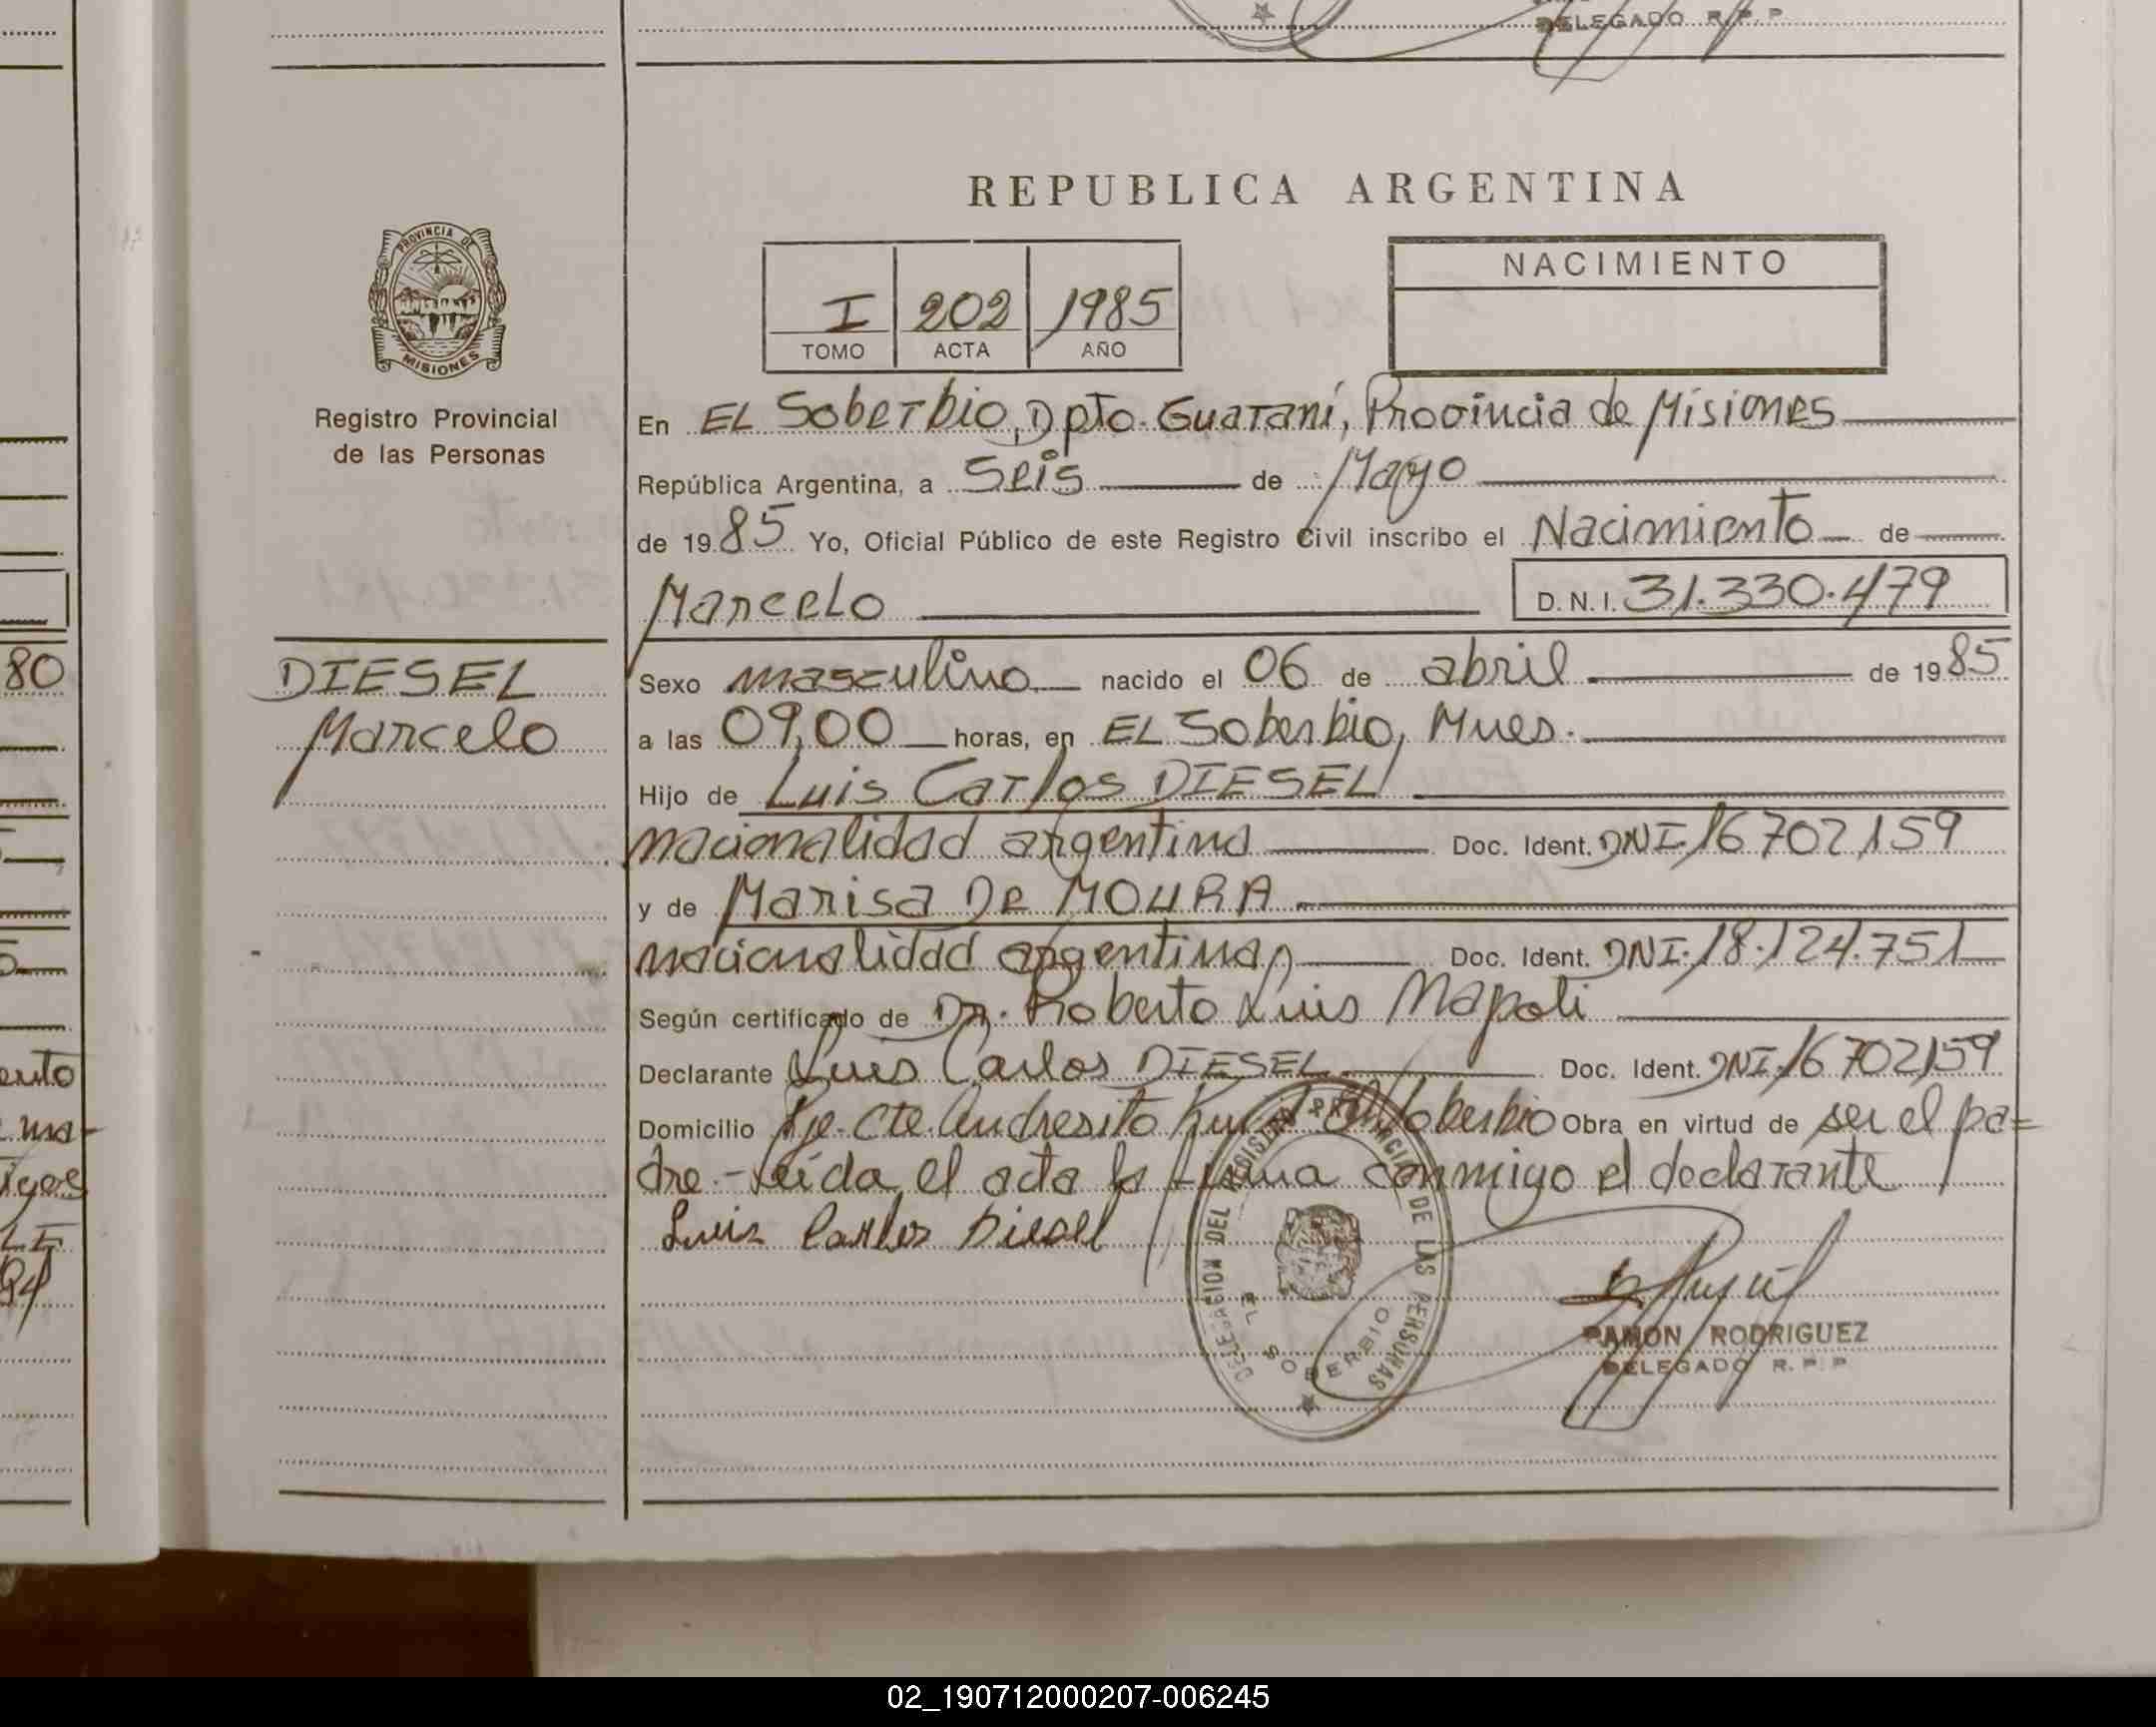 DELEGADO R.P.P
REPUBLICA ARGENTINA
PROVINCIA DE
MISIONES
Registro Provincial
de las Personas
I 202 1985
TOMO ACTA AÑO
NACIMIENTO
En EL Soberbio, Dpto. Guaraní, Provincia de Misiones
República Argentina, a Seis de Mayo
de 1985 Yo, Oficial Público de este Registro Civil inscribo el Nacimiento de
Marcelo D.N.I. 31.330.479
DIESEL
Marcelo
Sexo masculino nacido el 06 de abril de 1985
a las 09,00 horas, en EL Soberbio, Mnes.
Hijo de Luis Carlos DIESEL
nacionalidad argentina Doc. Ident. DNI.16702159
y de Marisa De MOURA
nacionalidad argentina Doc. Ident. DNI.18.124.751
Según certificado de Dr. Roberto Luis Napoli
Declarante Luis Carlos DIESEL Doc. Ident. DNI.16702159
Domicilio Pje. Cte. Andresito Soberbio Obra en virtud de ser el pa=
dre.- Leída el acta la firma conmigo el declarante
Luis Carlos Diesel
DELEGACION DEL REGISTRO PROVINCIAL DE LAS PERSONAS
EL SOBERBIO
RAMON RODRIGUEZ
DELEGADO R.P.P
80
ento
ma-
02_190712000207-006245